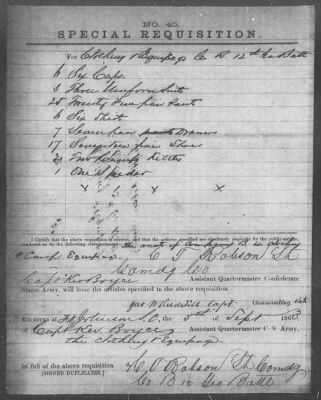 NO. 40.
SPECIAL REQUISITION.
For Clothing & Equipage Co B 12th Ga Batt
6 Six Caps
3 Three Uniform Suits
25 Twenty Five pair Pants
6 Six Shirts
7 Seven pair Drawers
17 Seventeen pair Shoes
2 Two Kettles
1 One
X X X X
I Certify that the above requisition is correct, and that the articles specified are absolutely requisite for the public service,
rendered so by the following circumstances: the want of Company B in clothing
& Camp Equipage. C T Robson Lt
Comdg Co
Capt Ker Boyce Assistant Quartermaster Confederate
States Army, will issue the articles specified in the above requisition.
Capt Commanding
Received at Ft Johnson S.C. the 5th of Sept 1863
of Capt Ker Boyce Assistant Quartermaster C. S. Army,
the clothing & Equipage
In full of the above requisition
[SIGNED DUPLICATES.]
C T Robson Lt Comdg
Co B 12 Geo Batt